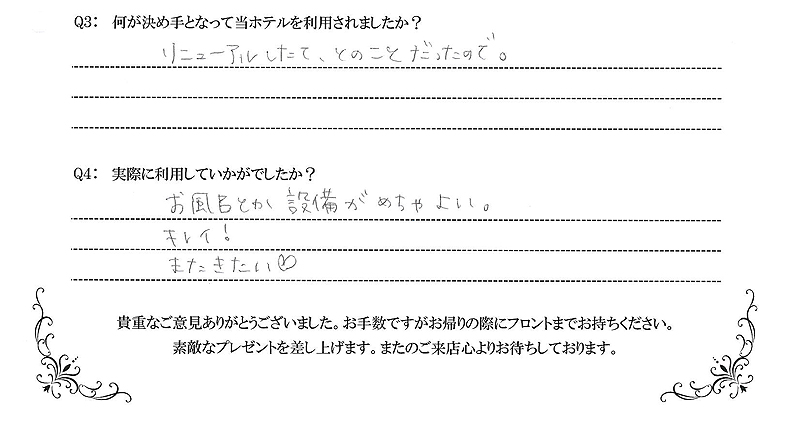 Q3: 何が決め手となって当ホテルを利用されましたか？
リニューアルしたて、とのことだったので。
Q4: 実際に利用していかがでしたか？
お風呂とか設備がめちゃよい。
キレイ！
またきたい♡
貴重なご意見ありがとうございました。お手数ですがお帰りの際にフロントまでお持ちください。
素敵なプレゼントを差し上げます。またのご来店心よりお待ちしております。